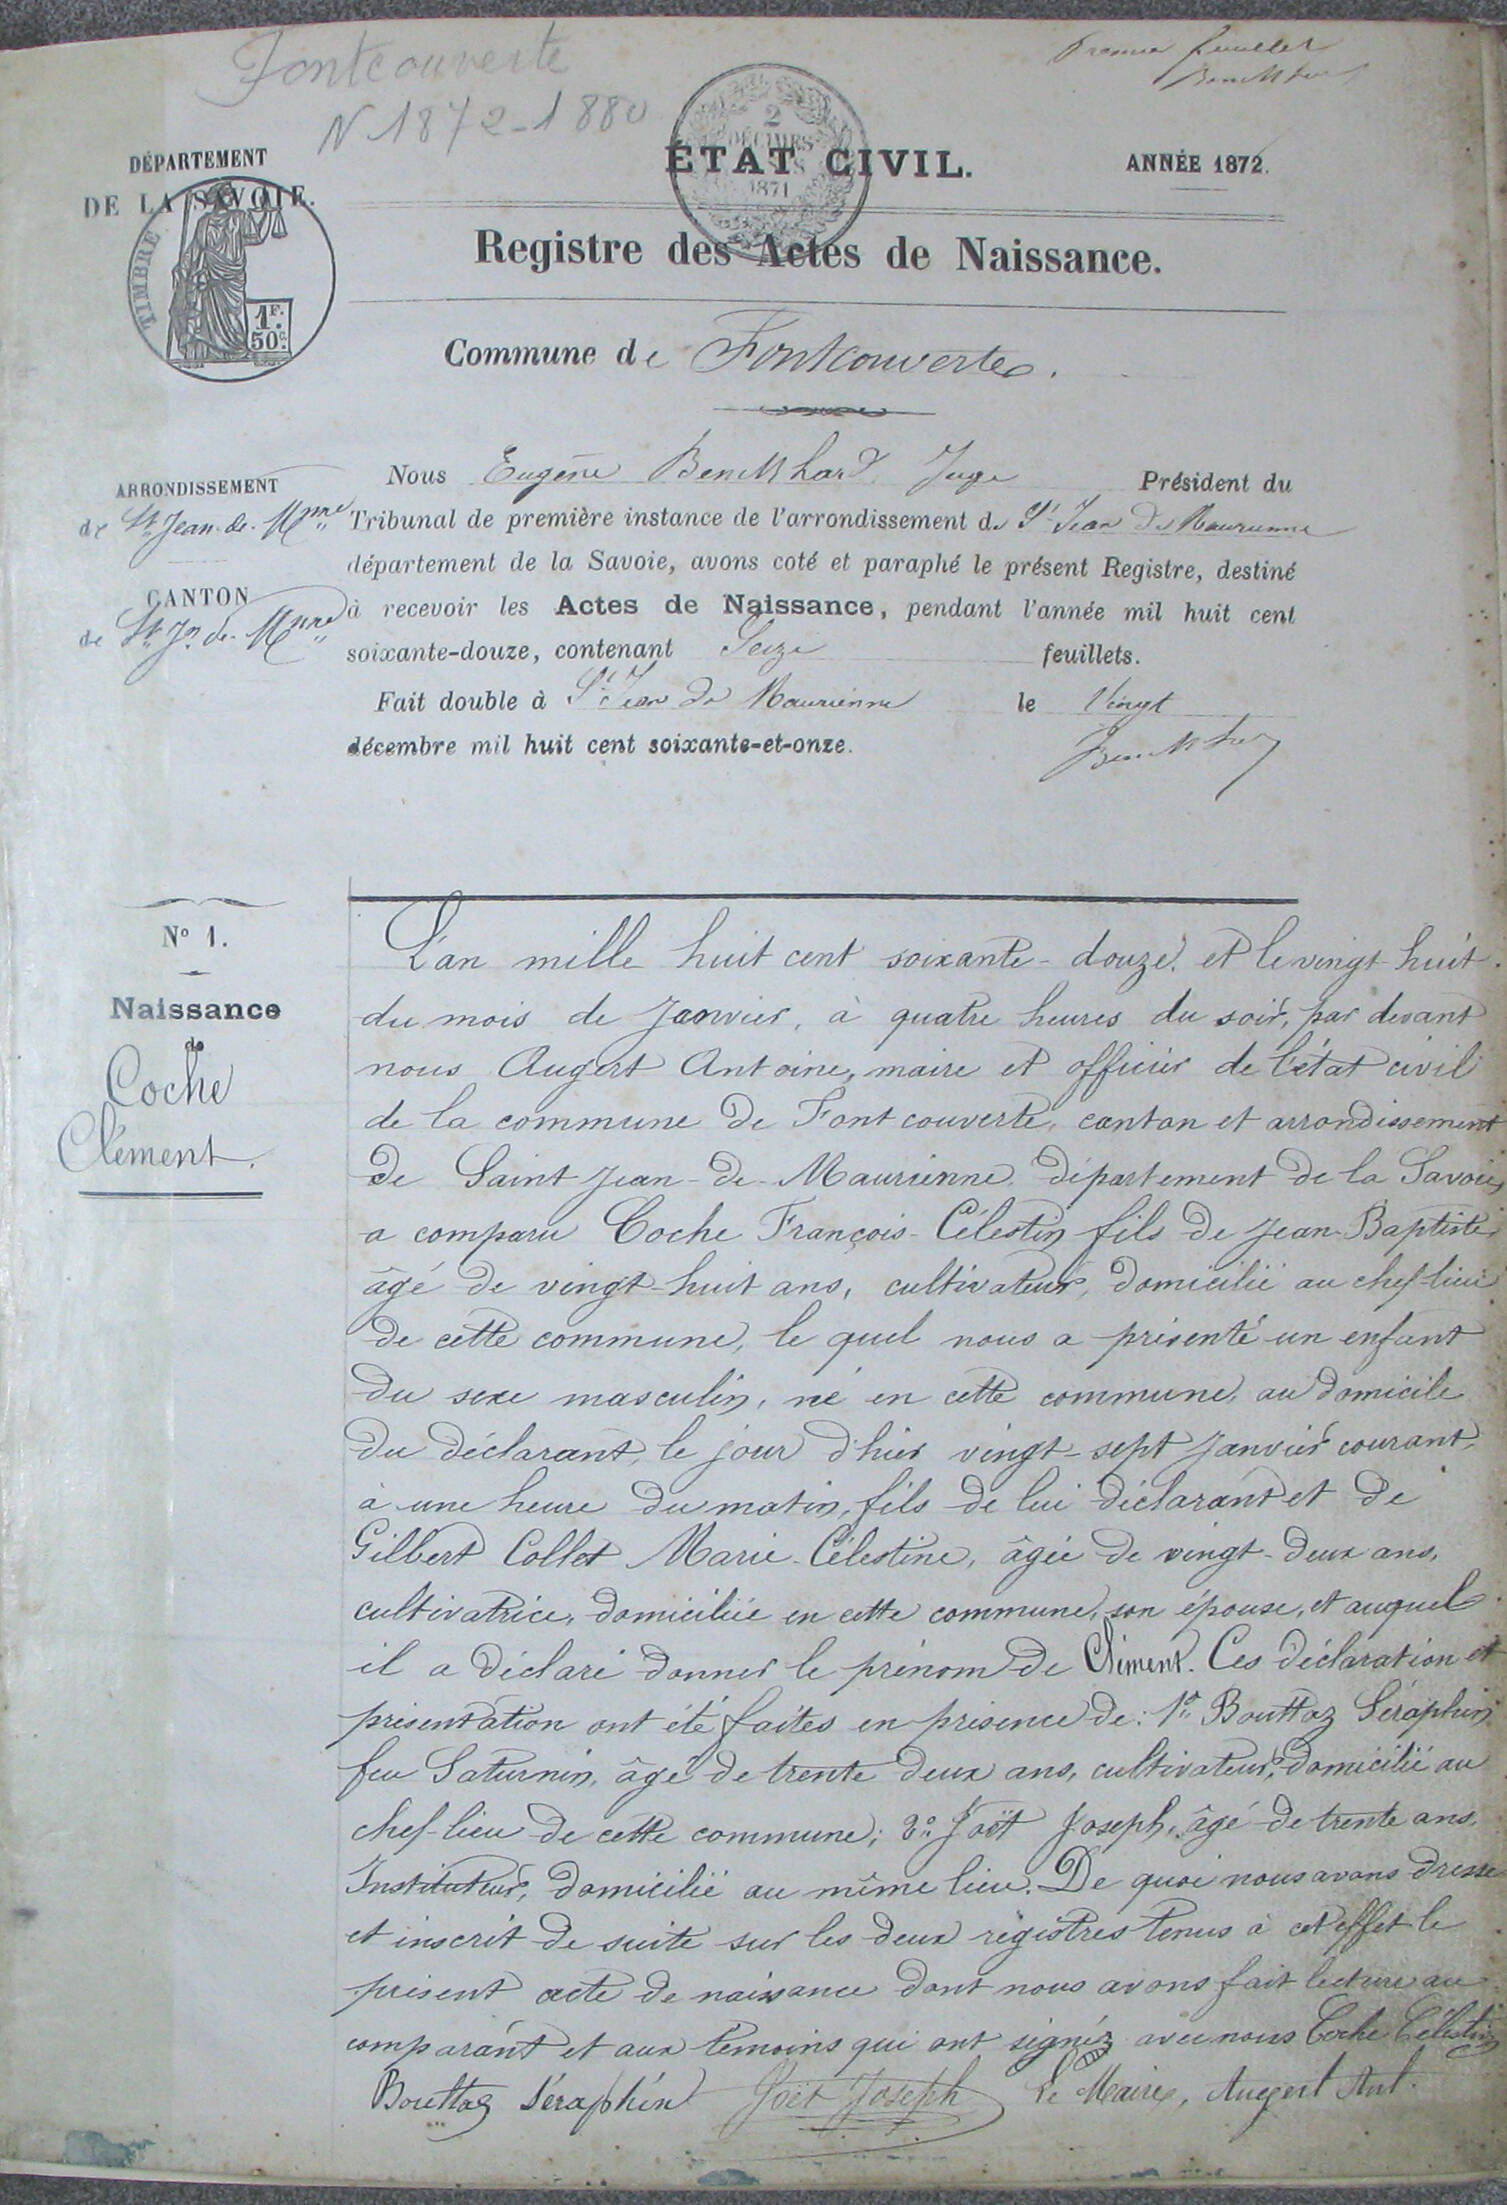 Fontcouverte
N 1872-1880
Premier feuillet
DÉPARTEMENT
DE LA SAVOIE.
TIMBRE
1F.
50c.
2
DÉCIMES
1871
ÉTAT CIVIL.
ANNÉE 1872.
Registre des Actes de Naissance.
Commune de Fontcouverte.
ARRONDISSEMENT
de St. Jean-de-Mnne
CANTON
de St. Jn. de-Mnne
Nous Eugène Juge Président du
Tribunal de première instance de l'arrondissement de St Jean de Maurienne
département de la Savoie, avons coté et paraphé le présent Registre, destiné
à recevoir les Actes de Naissance, pendant l'année mil huit cent
soixante-douze, contenant Seize feuillets.
Fait double à St Jean de Maurienne le Vingt
décembre mil huit cent soixante-et-onze.
No 1.
Naissance
de
Coche
Clément.
L'an mille huit cent soixante-douze, et le vingt-huit
du mois de Janvier, à quatre heures du soir, par devant
nous Augert Antoine, maire et officier de l'état civil
de la commune de Fontcouverte, canton et arrondissement
de Saint Jean-de-Maurienne, département de la Savoie,
a comparu Coche François-Célestin fils de Jean-Baptiste,
âgé de vingt-huit ans, cultivateur, domicilié au chef-lieu
de cette commune, le quel nous a présenté un enfant
du sexe masculin, né en cette commune, au domicile
du déclarant, le jour d'hier vingt-sept Janvier courant,
à une heure du matin, fils de lui déclarant et de
Gilbert Collet Marie-Célestine, âgée de vingt-deux ans,
cultivatrice, domiciliée en cette commune, son épouse, et auquel
il a déclaré donner le prénom de Clément. Ces déclaration et
présentation ont été faites en présence de: 1o Bouttaz Séraphin
feu Saturnin, âgé de trente deux ans, cultivateur, domicilié au
chef-lieu de cette commune; 2o Joët Joseph, âgé de trente ans,
Instituteur, domicilié au même lieu. De quoi nous avons dressé
et inscrit de suite sur les deux registres tenus à cet effet le
présent acte de naissance dont nous avons fait lecture au
comparant et aux témoins qui ont signéz avec nous Coche Célestin
Bouttaz Séraphin Joët Joseph Le Maire, Augert Ant.